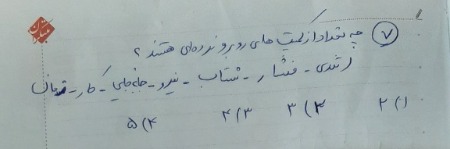 ۷) چه تعداد از کمیت های روبرو نرده‌ای هستند ؟
تندی - فشار - شتاب - نیرو - جابجایی - کار - زمان
۱) ۲   ۲) ۳   ۳) ۴   ۴) ۵